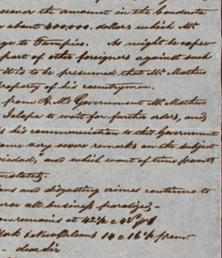 the amount in the Conducta
about 400.000. dollars which Mr
go to Tampico. As might be expec
part of other foreigners against such
it is to be presumed that Mr Mathew
property of his countrymen.
from H. M's Government Mr Mathew
Jalapa to wait for further orders, and
his communication to this Government
some very severe remarks on the subject
and which want of time prevents
and disgusting crimes continue to
all business paralized.
remains at 42½
14 c 16%
dear Sir